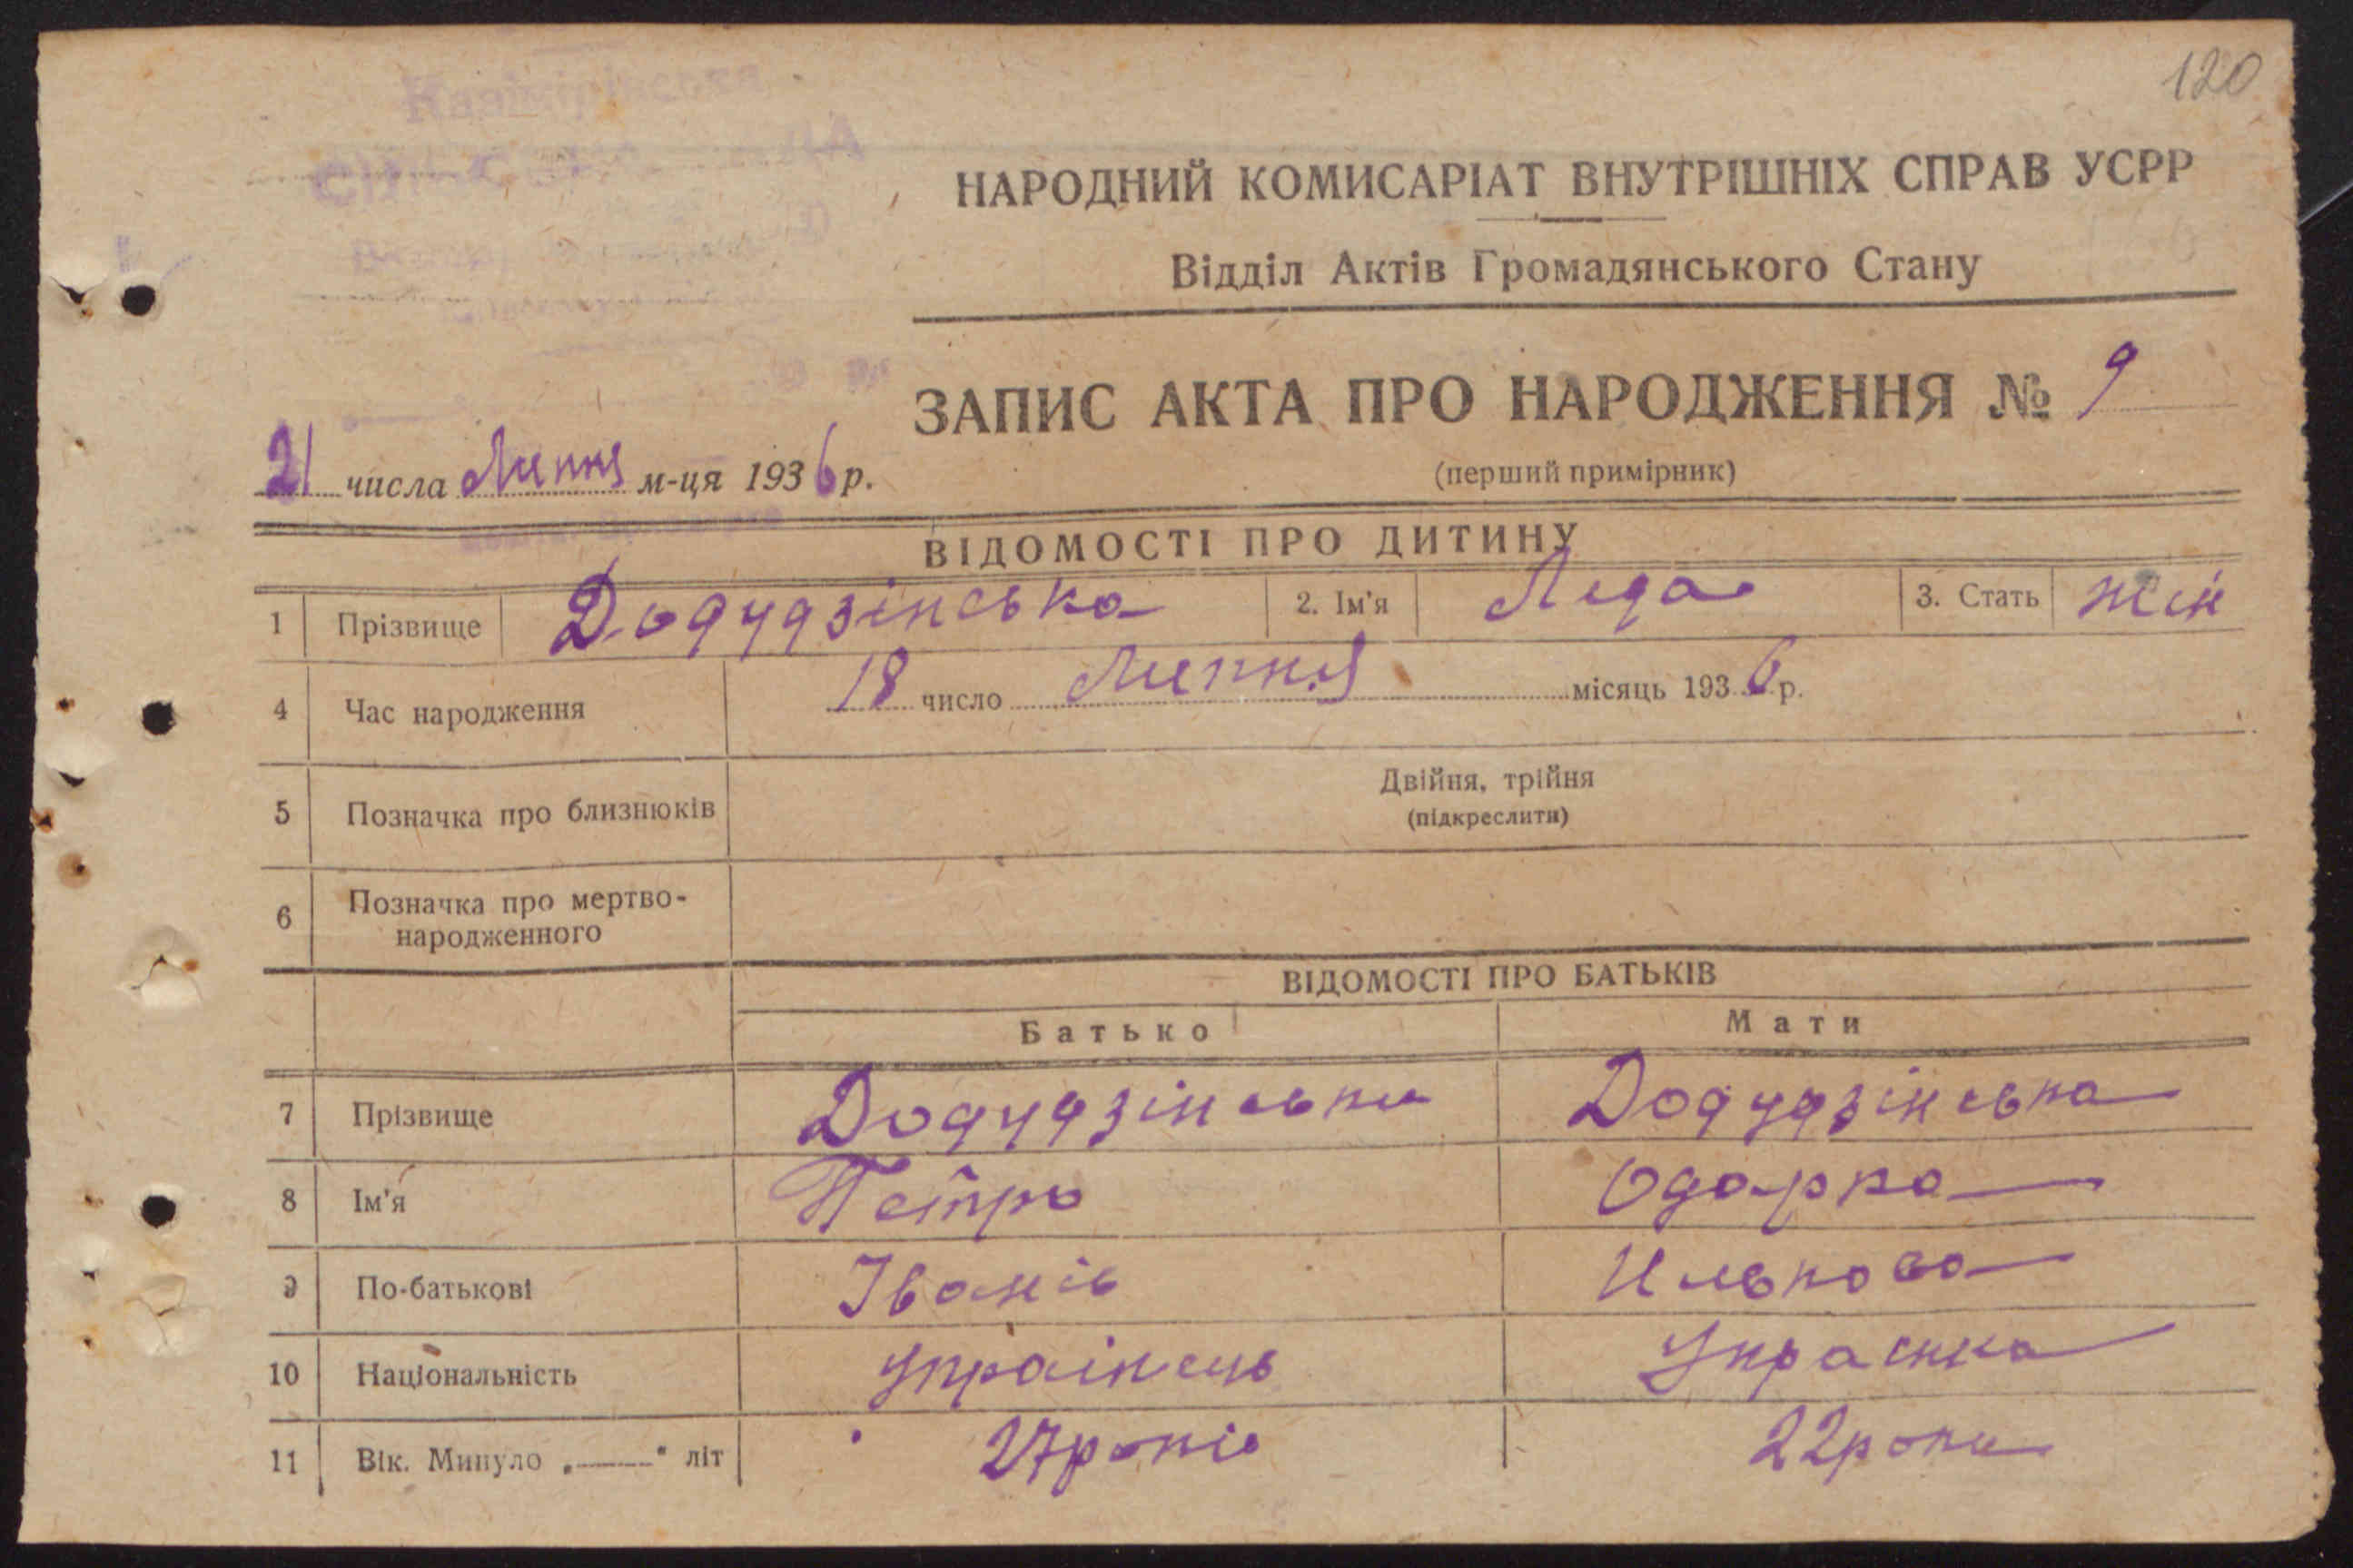 120
Казімірівська
НАРОДНИЙ КОМИСАРІАТ ВНУТРІШНІХ СПРАВ УСРР
Відділ Актів Громадянського Стану
ЗАПИС АКТА ПРО НАРОДЖЕННЯ № 9
21 числа Липня м-ця 1936 р.
(перший примірник)
ВІДОМОСТІ ПРО ДИТИНУ
1 Прізвище Додчдзінська 2. Ім'я Леда 3. Стать жін
4 Час народження 18 число Липня місяць 1936 р.
5 Позначка про близнюків Двійня, трійня
(підкреслити)
6 Позначка про мертво-
народженного
ВІДОМОСТІ ПРО БАТЬКІВ
Батько Мати
7 Прізвище Додчдзінськи Додчдзінська
8 Ім'я Петро Одарка
9 По-батькові Іванів Илькова
10 Національність Українець Украінка
11 Вік. Минуло „——" літ 27 років 22 роки